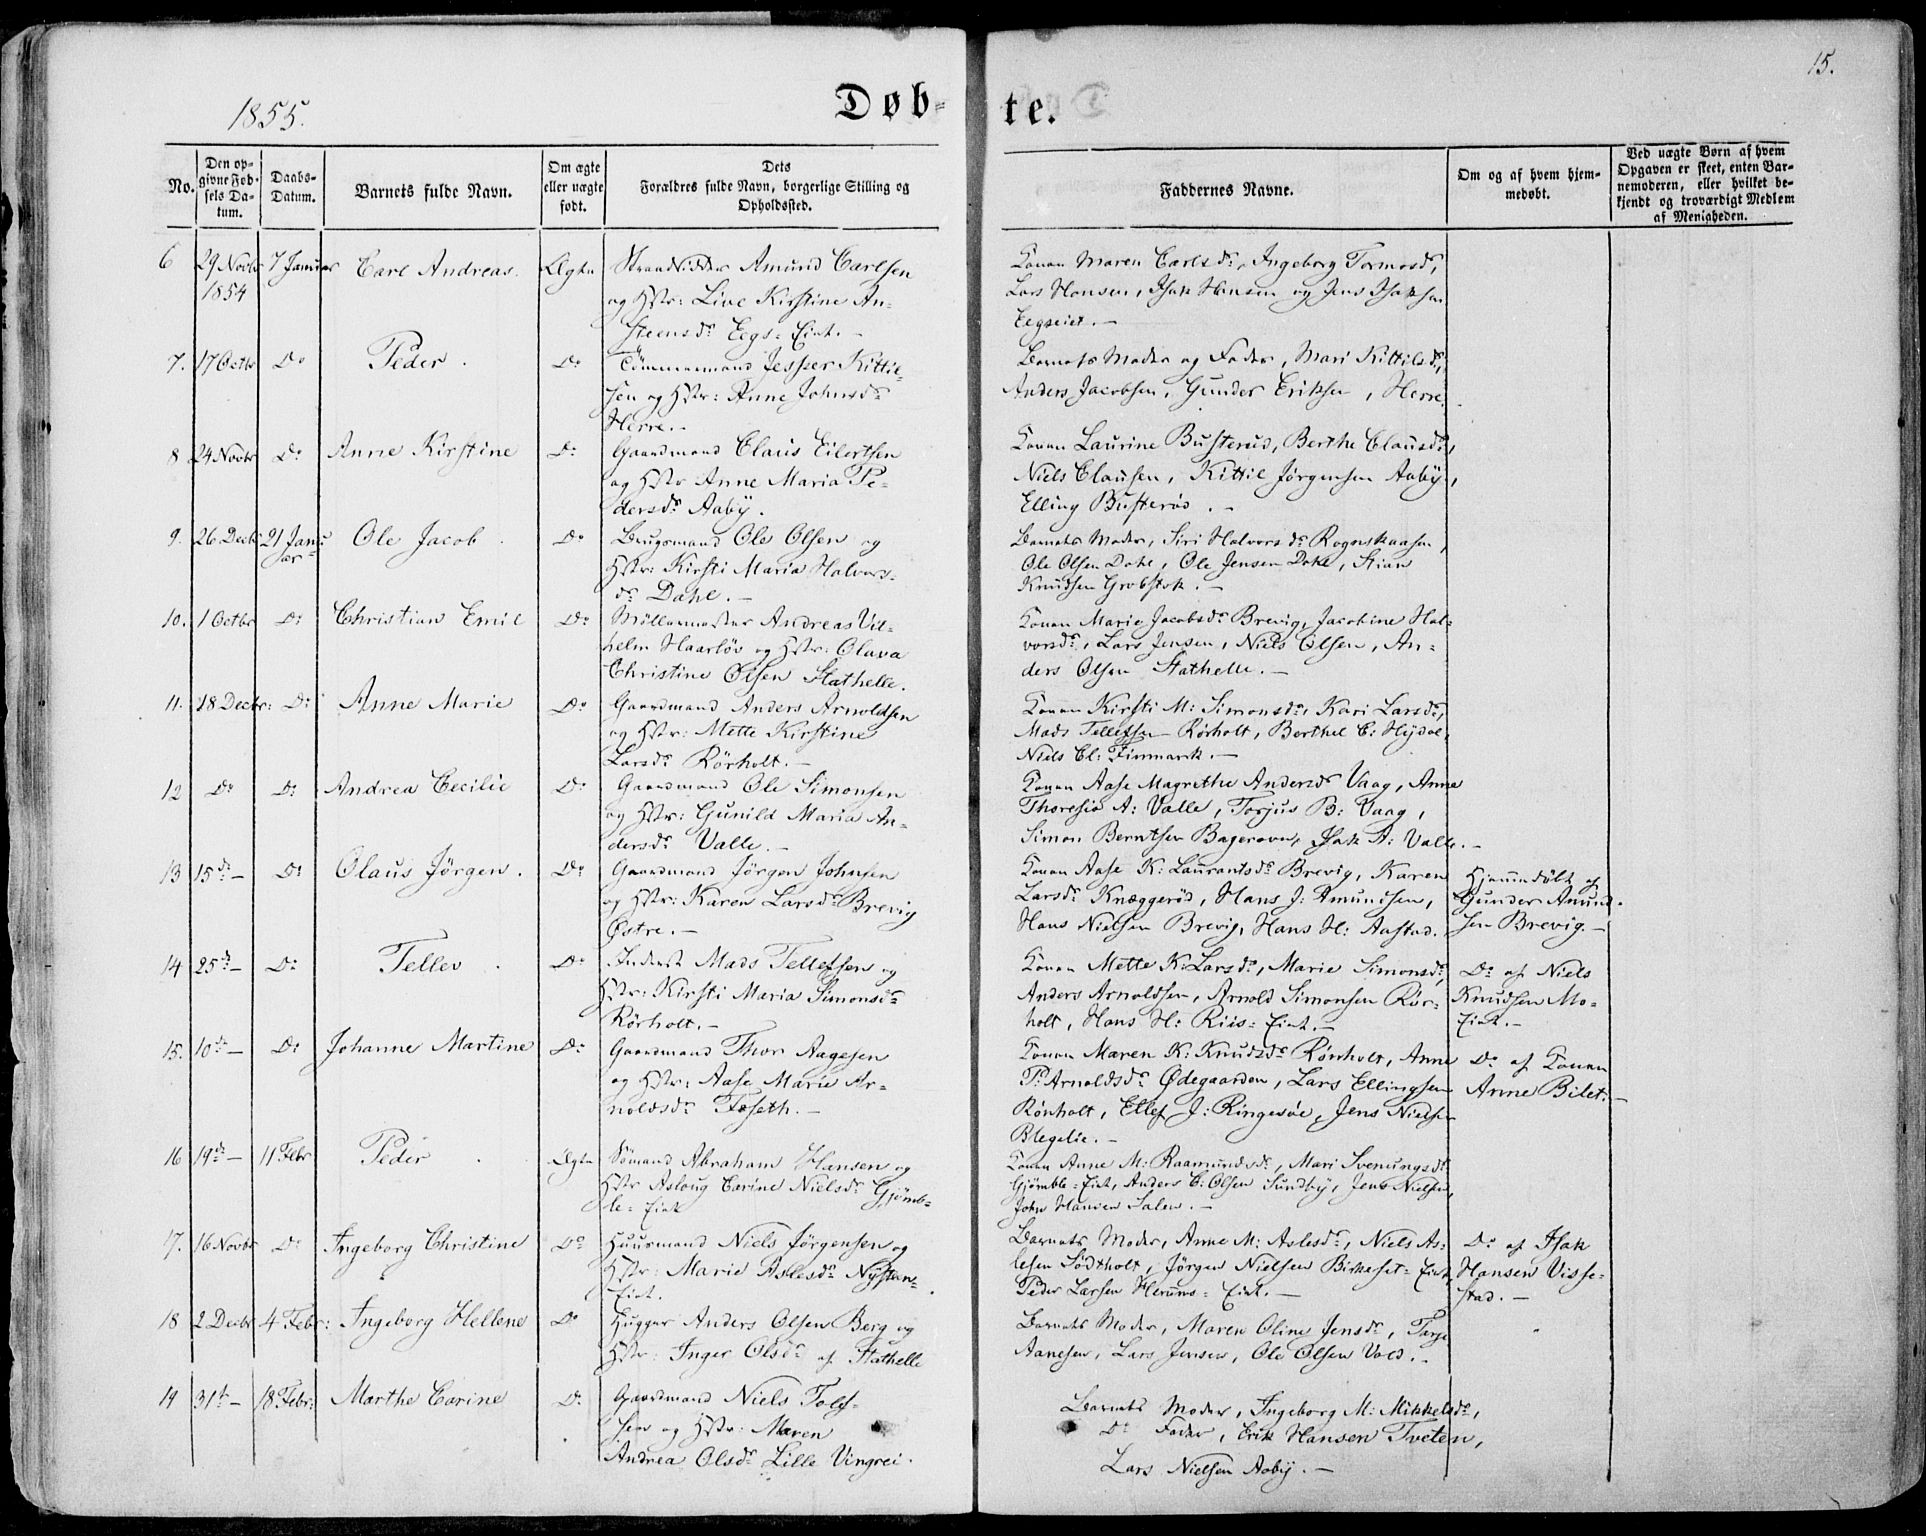 15.
1855.
Døb-
te.
No.
Den op-
givne Fød-
sels Da-
tum.
Daabs-
Datum.
Barnets fulde Navn.
Om ægte
eller uægte
født.
Dets
Forældres fulde Navn, borgerlige Stilling og
Opholdssted.
Faddernes Navne.
Om og af hvem hjem-
medøbt.
Ved uægte Børn af hvem
Opgaven er skeet, enten Bar-
nemoderen, eller hvilket be-
kjendt og troværdigt Medlem
af Menigheden.
6 29 Novbr 7 Januar Carl Andreas. Ægte Strandsidder Amund Carlsen
1854 og Hstr: Live Kirstine An-
steensdr Eegs-Eiet.-
Konen Maren Carlsdr, Ingeborg Tormodsdr,
Lars Hansen, Isak Hansen og Jens Isaksen
Eegseiet.-
7. 17 Octbr Do Peder. Do Tömmermand Jesper Kittil-
sen og Hstr: Anne Johnsdr
Herre.-
Barnets Moder og Fader, Mari Kittilsdr,
Anders Jacobsen, Gunder Eriksen, Herre.
8 24 Novbr Do Anne Kirstine Do Gaardmand Claus Eilertsen
og Hstr Anne Maria Pe-
dersdr Aaby.
Konen Laurine Busterud, Berthe Clausdr,
Niels Clausen, Kittil Jørgensen Aaby,
Elling Busterød.-
9. 26 Decbr 21 Janu- Ole Jacob. Do Brugsmand Ole Olsen og
ar Hstr: Kirsti Maria Halvors-
dr Dahl.-
Barnets Moder, Siri Halvorsdr Rognskaasen,
Ole Olsen Dahl, Ole Jensen Dahl, Stian
Knudsen Grobstok.-
10. 1 Octbr Do Christian Emil Do Möllermester Andreas Vil-
helm Haarløv og Hstr: Olava
Christine Olsen Stathelle.
Konen Marie Jacobsdr Brevig, Jacobine Hal-
vorsdr, Lars Jensen, Niels Olsen, An-
ders Olsen Stathelle.-
11. 18 Decbr: Do Anne Marie Do Gaardmand Anders Arnoldsen
og Hstr: Mette Kirstine
Larsdr Rörholt.-
Konen Kirsti M: Simonsdr, Kari Larsdr,
Mads Tellefsen Rörholt, Berthel C: Hydal,
Niels Cl: Finmark.-
12 Do Do Andrea Cecilie Do Gaardmand Ole Simonsen
og Hstr: Gunild Maria An-
dersdr Valle.-
Konen Aase Magrethe Andersdr Vaag, Anne
Thoresia A: Valle, Torjus B: Vaag,
Simon Berntsen Bagerovn, Isak A: Valle.-
13 15de - Do Olaus Jørgen. Do Gaardmand Jørgen Johnsen
og Hstr: Karen Larsdr Brevig
Østre.-
Konen Aase K: Laurantsdr Brevig, Karen
Larsdr Knæggerød, Hans J: Amundsen,
Hans Nielsen Brevig, Hans H: Aastad.
Hjemmedøbt af
Gunder Amund-
sen Brevig.-
14 25de - Do Tellev. Do Inderst Mads Tellefsen og
Hstr: Kirsti Maria Simonsdr
Rörholt.-
Konen Mette K: Larsdr, Marie Simonsdr,
Anders Arnoldsen, Arnold Simonsen Rör-
holt, Hans H: Riis-Eiet.-
Do af Niels
Knudsen Mo-
Eiet.-
15. 10de - Do Johanne Martine Do Gaardmand Thor Aagesen
og Hstr: Aase Marie Ar-
noldsdr Foseth.-
Konen Maren K: Knudsdr Rönholt, Anne
P: Arnoldsdr Ødegaarden, Lars Ellingsen
Rönholt, Ellef J: Ringesöe, Jens Nielsen
Blegelie.-
Do af Konen
Anne Bilet.-
16 19de - 11 Febr Peder. Ægte Sömand Abraham Hansen og
Hstr Asloug Carine Nielsdr Gjömb-
le-Eiet
Konen Anne M: Raamundsdr, Mari Svenungsdr
Gjömble-Eiet, Anders C: Olsen Sundby, Jens Nielsen,
John Hansen Salen.-
17. 16 Novbr Do Ingeborg Christine Do Huusmand Niels Jørgensen og
Hstr: Marie Aslesdr Nystan-
Eiet.
Barnets Moder, Anne M: Aslesdr, Niels As-
lesen Södtholt, Jörgen Nielsen Birkeset-Eiet,
Peder Larsen Herums-Eiet.-
Do af Isak
Hansen Visse-
stad.-
18 2 Decbr 4 Febr: Ingeborg Hellene Do Hugger Anders Olsen Berg og
Hstr: Inger Olsdr af Stathelle
Barnets Moder, Maren Oline Jensdr, Tarje
Aanesen, Lars Jensen, Ole Olsen Vold.-
19 31te - 18 Febr: Marthe Carine Do Gaardmand Niels Tolf-
sen og Hstr: Maren
Andrea Olsdr Lille Vingrei.
Barnets Moder, Ingeborg M: Mikkelsdr,
Do Fader, Erik Hansen Tveten,
Lars Nielsen Aaby.-